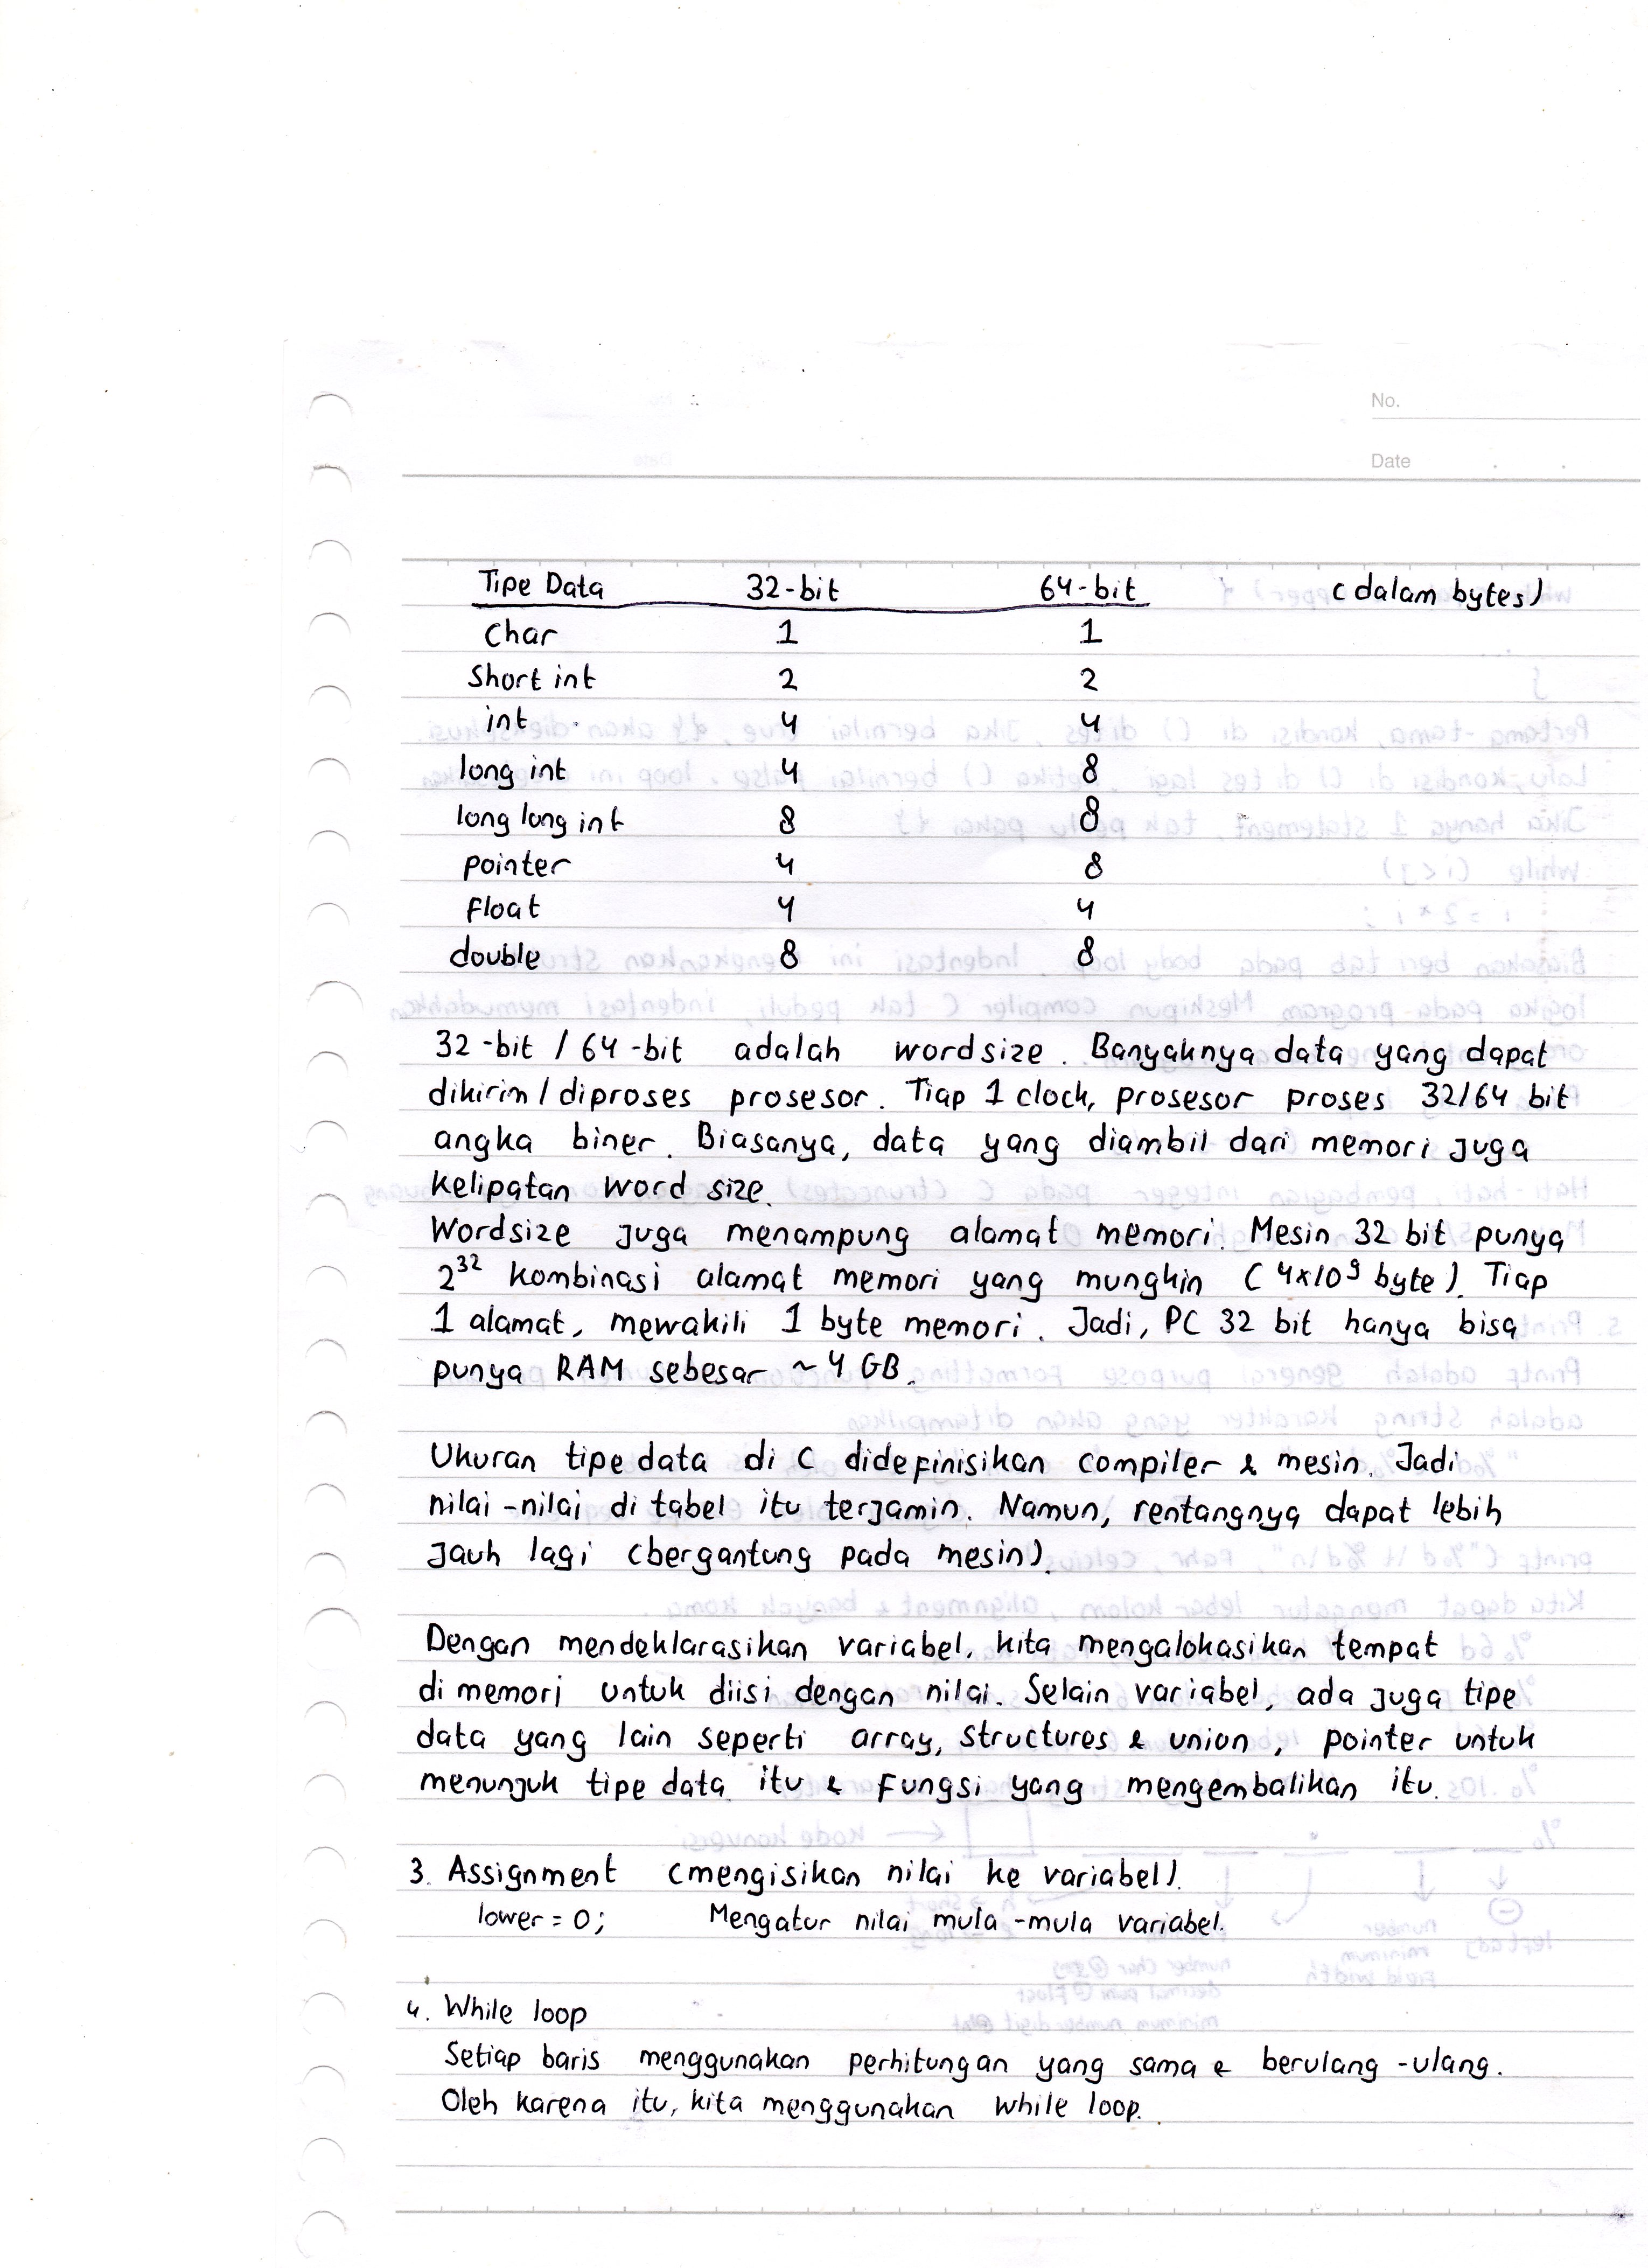 No.
Date
Tipe Data 32-bit 64-bit (dalam bytes)
Char 1 1
Short int 2 2
int 4 4
long int 4 8
long long int 8 8
pointer 4 8
Float 4 4
double 8 8
32-bit / 64-bit adalah wordsize. Banyaknya data yang dapat
dikirim / diproses prosesor. Tiap 1 clock, prosesor proses 32/64 bit
angka biner. Biasanya, data yang diambil dari memori juga
kelipatan word size.
Wordsize juga menampung alamat memori. Mesin 32 bit punya
2³² kombinasi alamat memori yang mungkin (4x10⁹ byte). Tiap
1 alamat, mewakili 1 byte memori. Jadi, PC 32 bit hanya bisa
punya RAM sebesar ~ 4 GB.
Ukuran tipe data di C didefinisikan compiler & mesin. Jadi
nilai-nilai di tabel itu terjamin. Namun, rentangnya dapat lebih
jauh lagi (bergantung pada mesin).
Dengan mendeklarasikan variabel, kita mengalokasikan tempat
di memori untuk diisi dengan nilai. Selain variabel, ada juga tipe
data yang lain seperti array, structures & union, pointer untuk
menunjuk tipe data itu & Fungsi yang mengembalikan itu.
3. Assignment (mengisikan nilai ke variabel).
lower = 0; Mengatur nilai mula-mula variabel.
4. While loop
Setiap baris menggunakan perhitungan yang sama & berulang-ulang.
Oleh karena itu, kita menggunakan while loop.